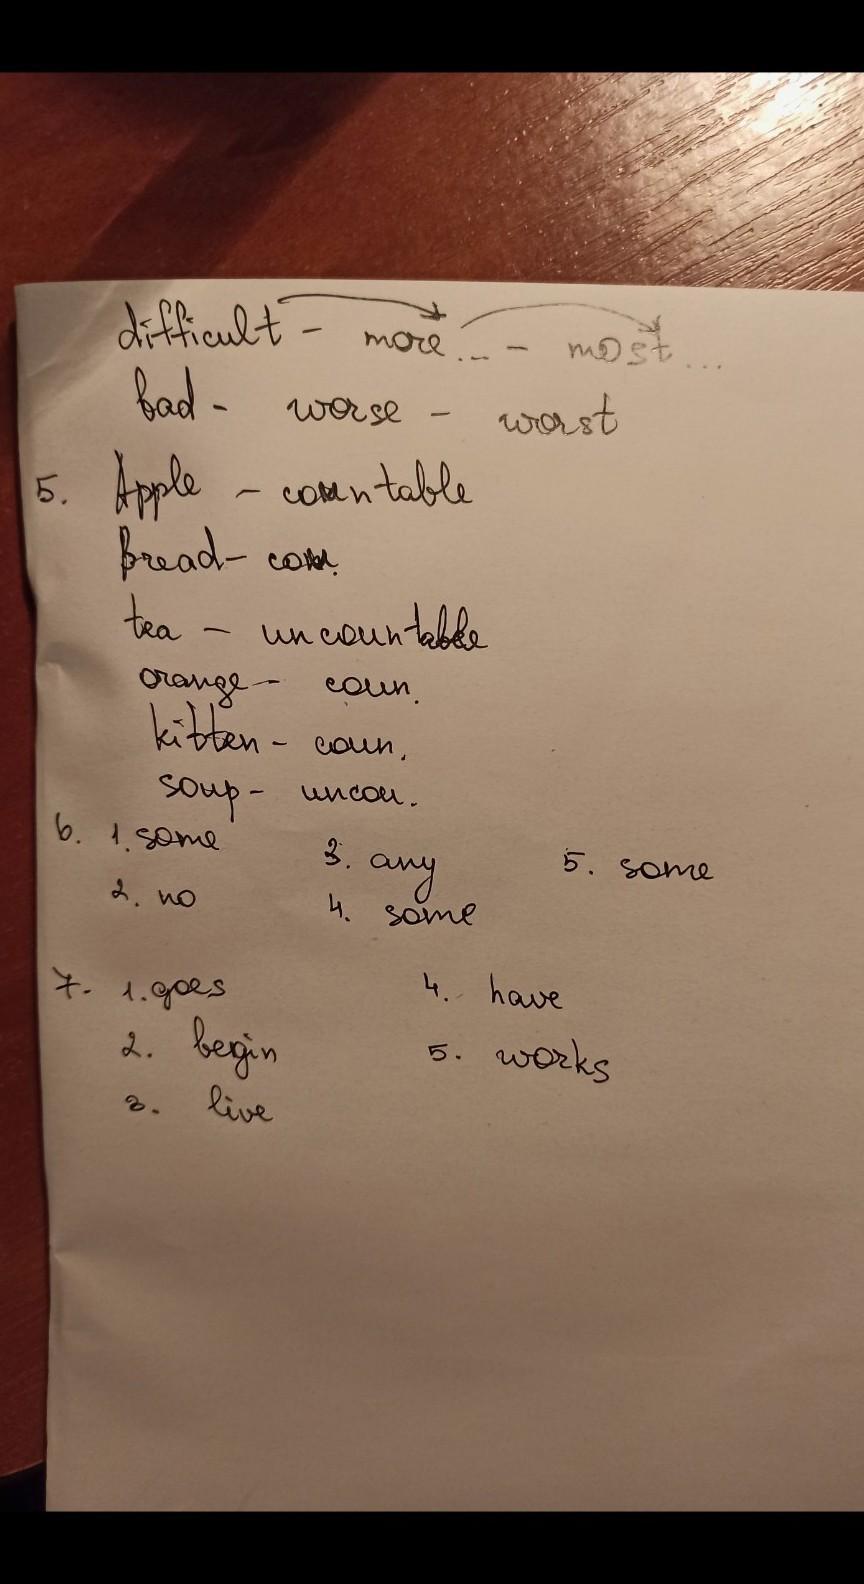 difficult - more... - most...
bad - worse - worst
5. Apple - countable
Bread - coun.
tea - uncountable
orange - coun.
kitten - coun.
soup - uncou.
6. 1. some 3. any 5. some
2. no 4. some
7. 1. goes 4. have
2. begin 5. works
3. live